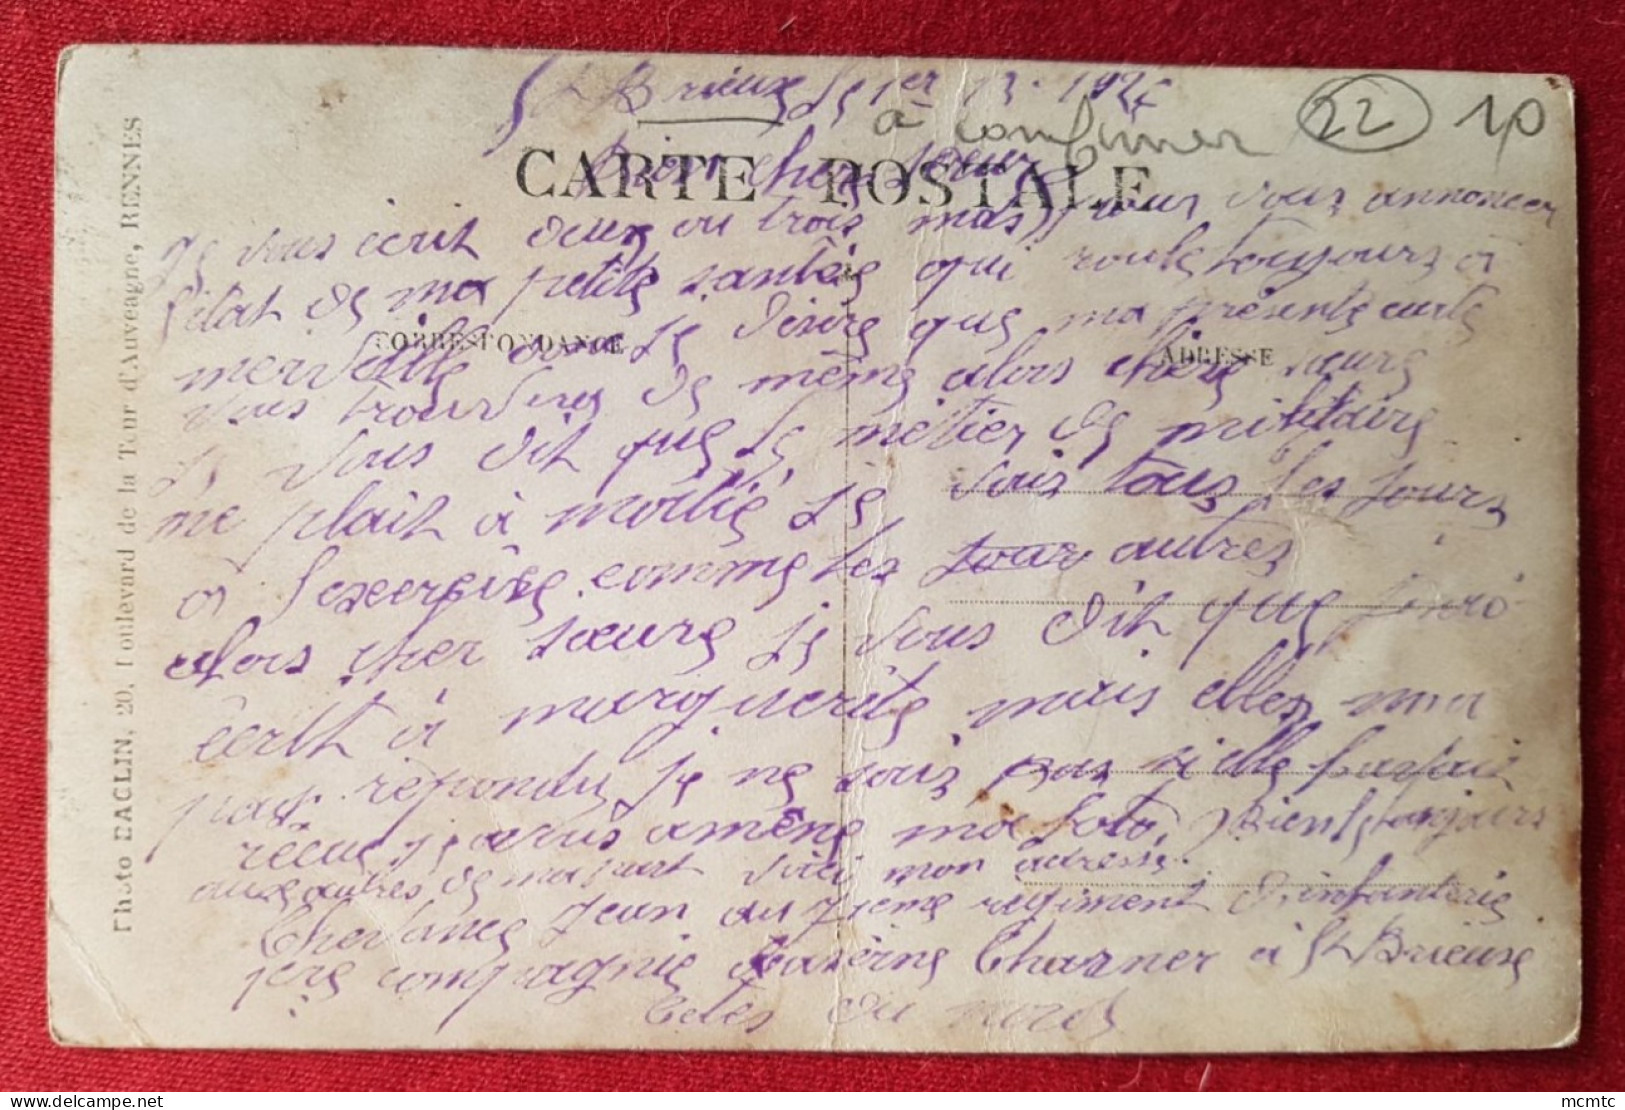 St Brieux le 1er 1924
à confirmer 22 10
CARTE POSTALE
Bien cher sœure
Je vous écrit deux ou trois mots pour vous annoncer
l'état de ma petite santée qui roule toujours à
merveille que je désire que ma présente carte
CORRESPONDANCE
ADRESSE
vous de même alors chère sœure
Je vous dit que le métier de militaire
me plait à moitié je vais tous les jours
à l'exercise comme les autres
alors cher sœure je vous dit que
écrit à marguerite mais elles ma
pas répondu je ne sais pas si elle
ma foto, Bien le
aux autres de ma part voici mon adresse.
Jean au 71eme regiment d'infanterie
1ere compagnie Caserne Charner à St Brieuxe
Cotes du nord
Photo DACLIN, 20, Boulevard de la Tour d'Auveagne, RENNES
mcmtc